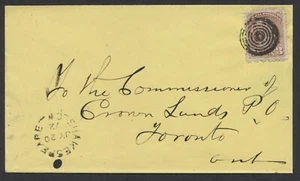 To the Commissioner of
Crown Lands P.O.
Toronto
Ont
SHAKESPEARE
JY 20
72